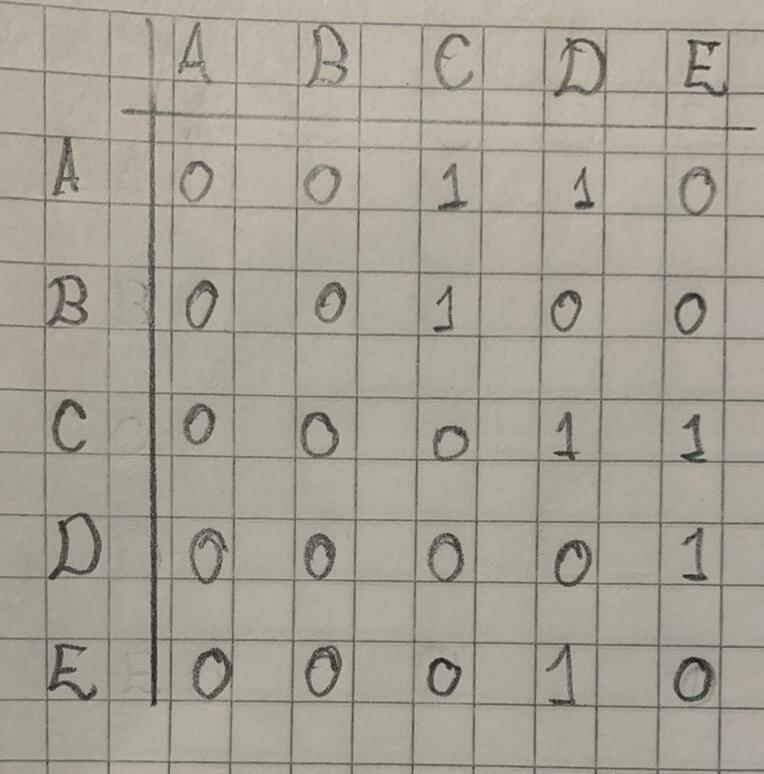 A B C D E
A 0 0 1 1 0
B 0 0 1 0 0
C 0 0 0 1 1
D 0 0 0 0 1
E 0 0 0 1 0